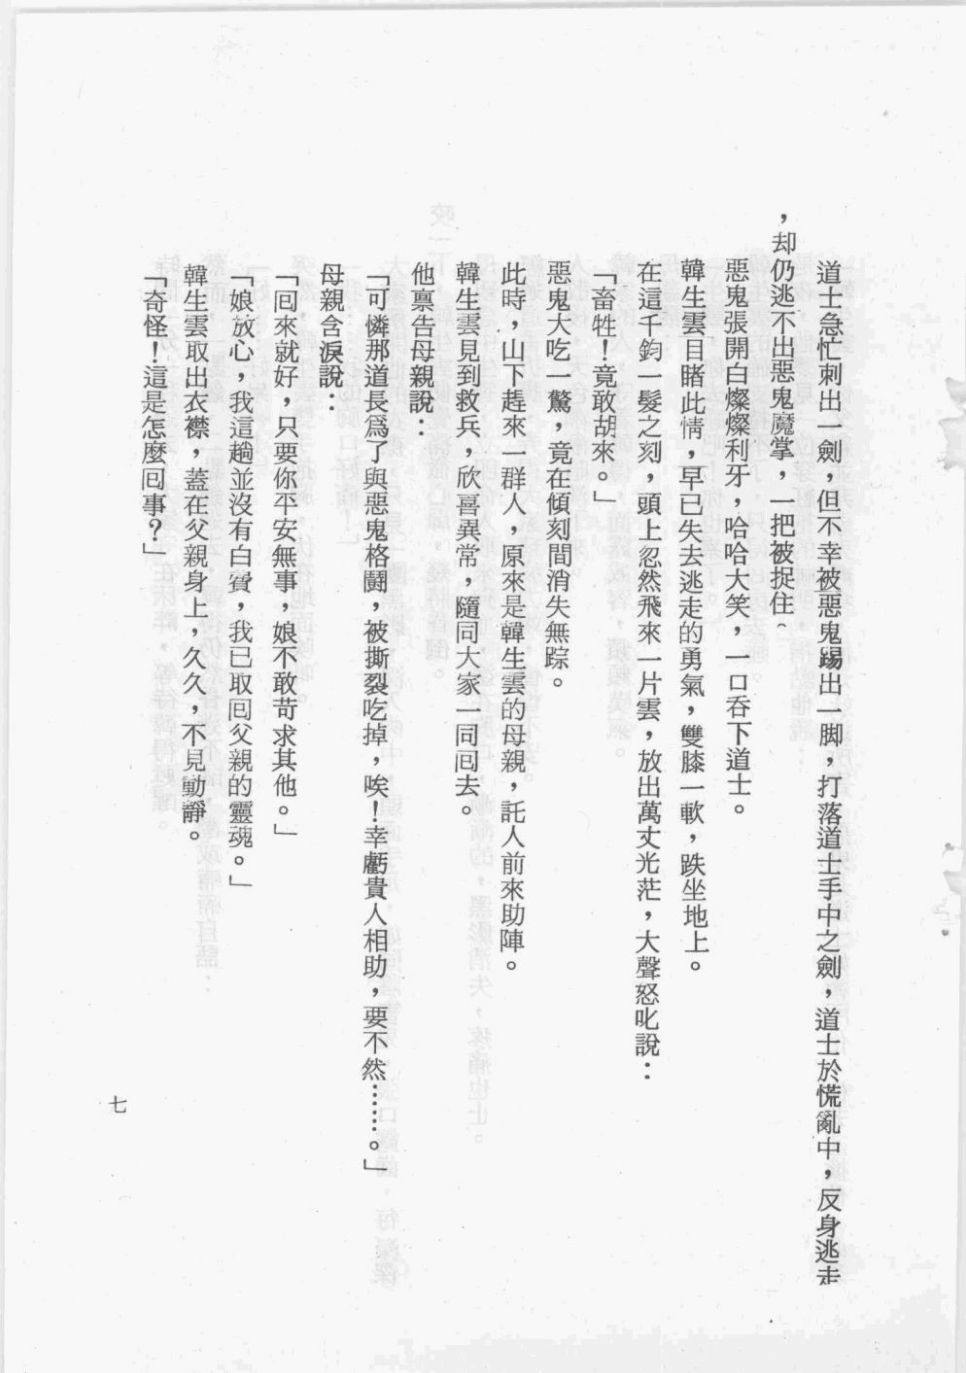 道士急忙刺出一劍，但不幸被惡鬼踢出一脚，打落道士手中之劍，道士於慌亂中，反身逃走
，却仍逃不出惡鬼魔掌，一把被捉住。
惡鬼張開白燦燦利牙，哈哈大笑，一口吞下道士。
韓生雲目睹此情，早已失去逃走的勇氣，雙膝一軟，跌坐地上。
在這千鈞一髮之刻，頭上忽然飛來一片雲，放出萬丈光茫，大聲怒叱說：
「畜牲！竟敢胡來。」
惡鬼大吃一驚，竟在傾刻間消失無踪。
此時，山下趕來一群人，原來是韓生雲的母親，託人前來助陣。
韓生雲見到救兵，欣喜異常，隨同大家一同囘去。
他禀告母親說：
「可憐那道長爲了與惡鬼格鬪，被撕裂吃掉，唉！幸虧貴人相助，要不然……。」
母親含淚說：
「囘來就好，只要你平安無事，娘不敢苛求其他。」
「娘放心，我這趟並沒有白費，我已取囘父親的靈魂。」
韓生雲取出衣襟，蓋在父親身上，久久，不見動靜。
「奇怪！這是怎麼囘事？」
七